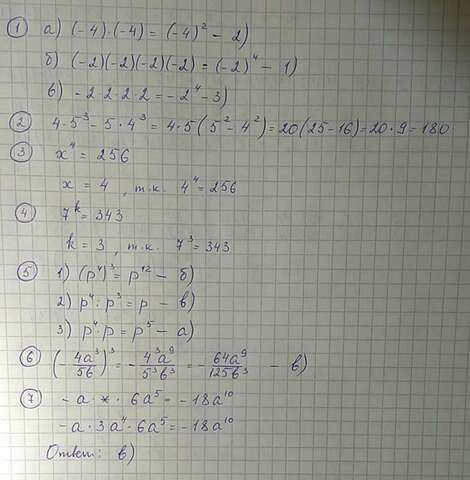 ① а) (-4)·(-4) = (-4)² - 2)
б) (-2)(-2)(-2)(-2) = (-2)⁴ - 1)
в) -2·2·2·2 = -2⁴ - 3)
② 4·5³ - 5·4³ = 4·5(5² - 4²) = 20(25-16) = 20·9 = 180
③ x⁴ = 256
x = 4, т.к. 4⁴ = 256
④ 7ᵏ = 343
k = 3, т.к. 7³ = 343
⑤ 1) (p⁴)³ = p¹² - б)
2) p⁴ : p³ = p - в)
3) p⁴·p = p⁵ - а)
⑥ (-4a³/5б)³ = -4³a⁹/5³б³ = -64a⁹/125б³ - в)
⑦ -a · * · 6a⁵ = -18a¹⁰
-a · 3a⁴ · 6a⁵ = -18a¹⁰
Ответ: в)